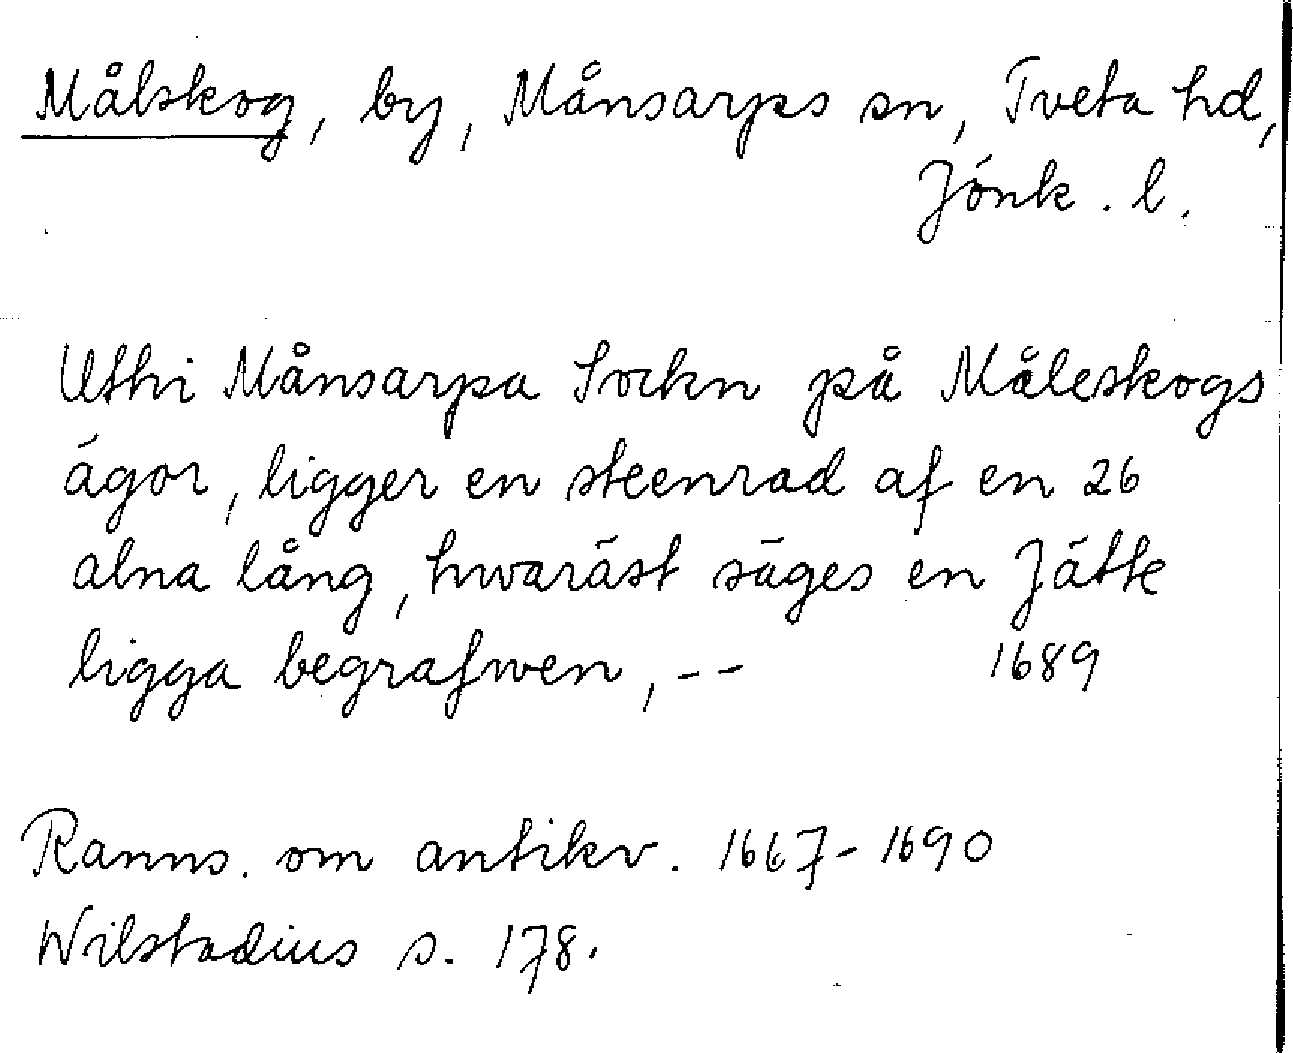 Målskog, by, Månsarps sn, Tveta hd,
Jönk. l.
Uthi Månsarpa Sockn på Måleskogs
ägor, ligger en steenrad af en 26
alna lång, hwaräst säges en Jätte
ligga begrafwen, -- 1689
Ranns. om antikv. 1667-1690
Wilstadius s. 178.